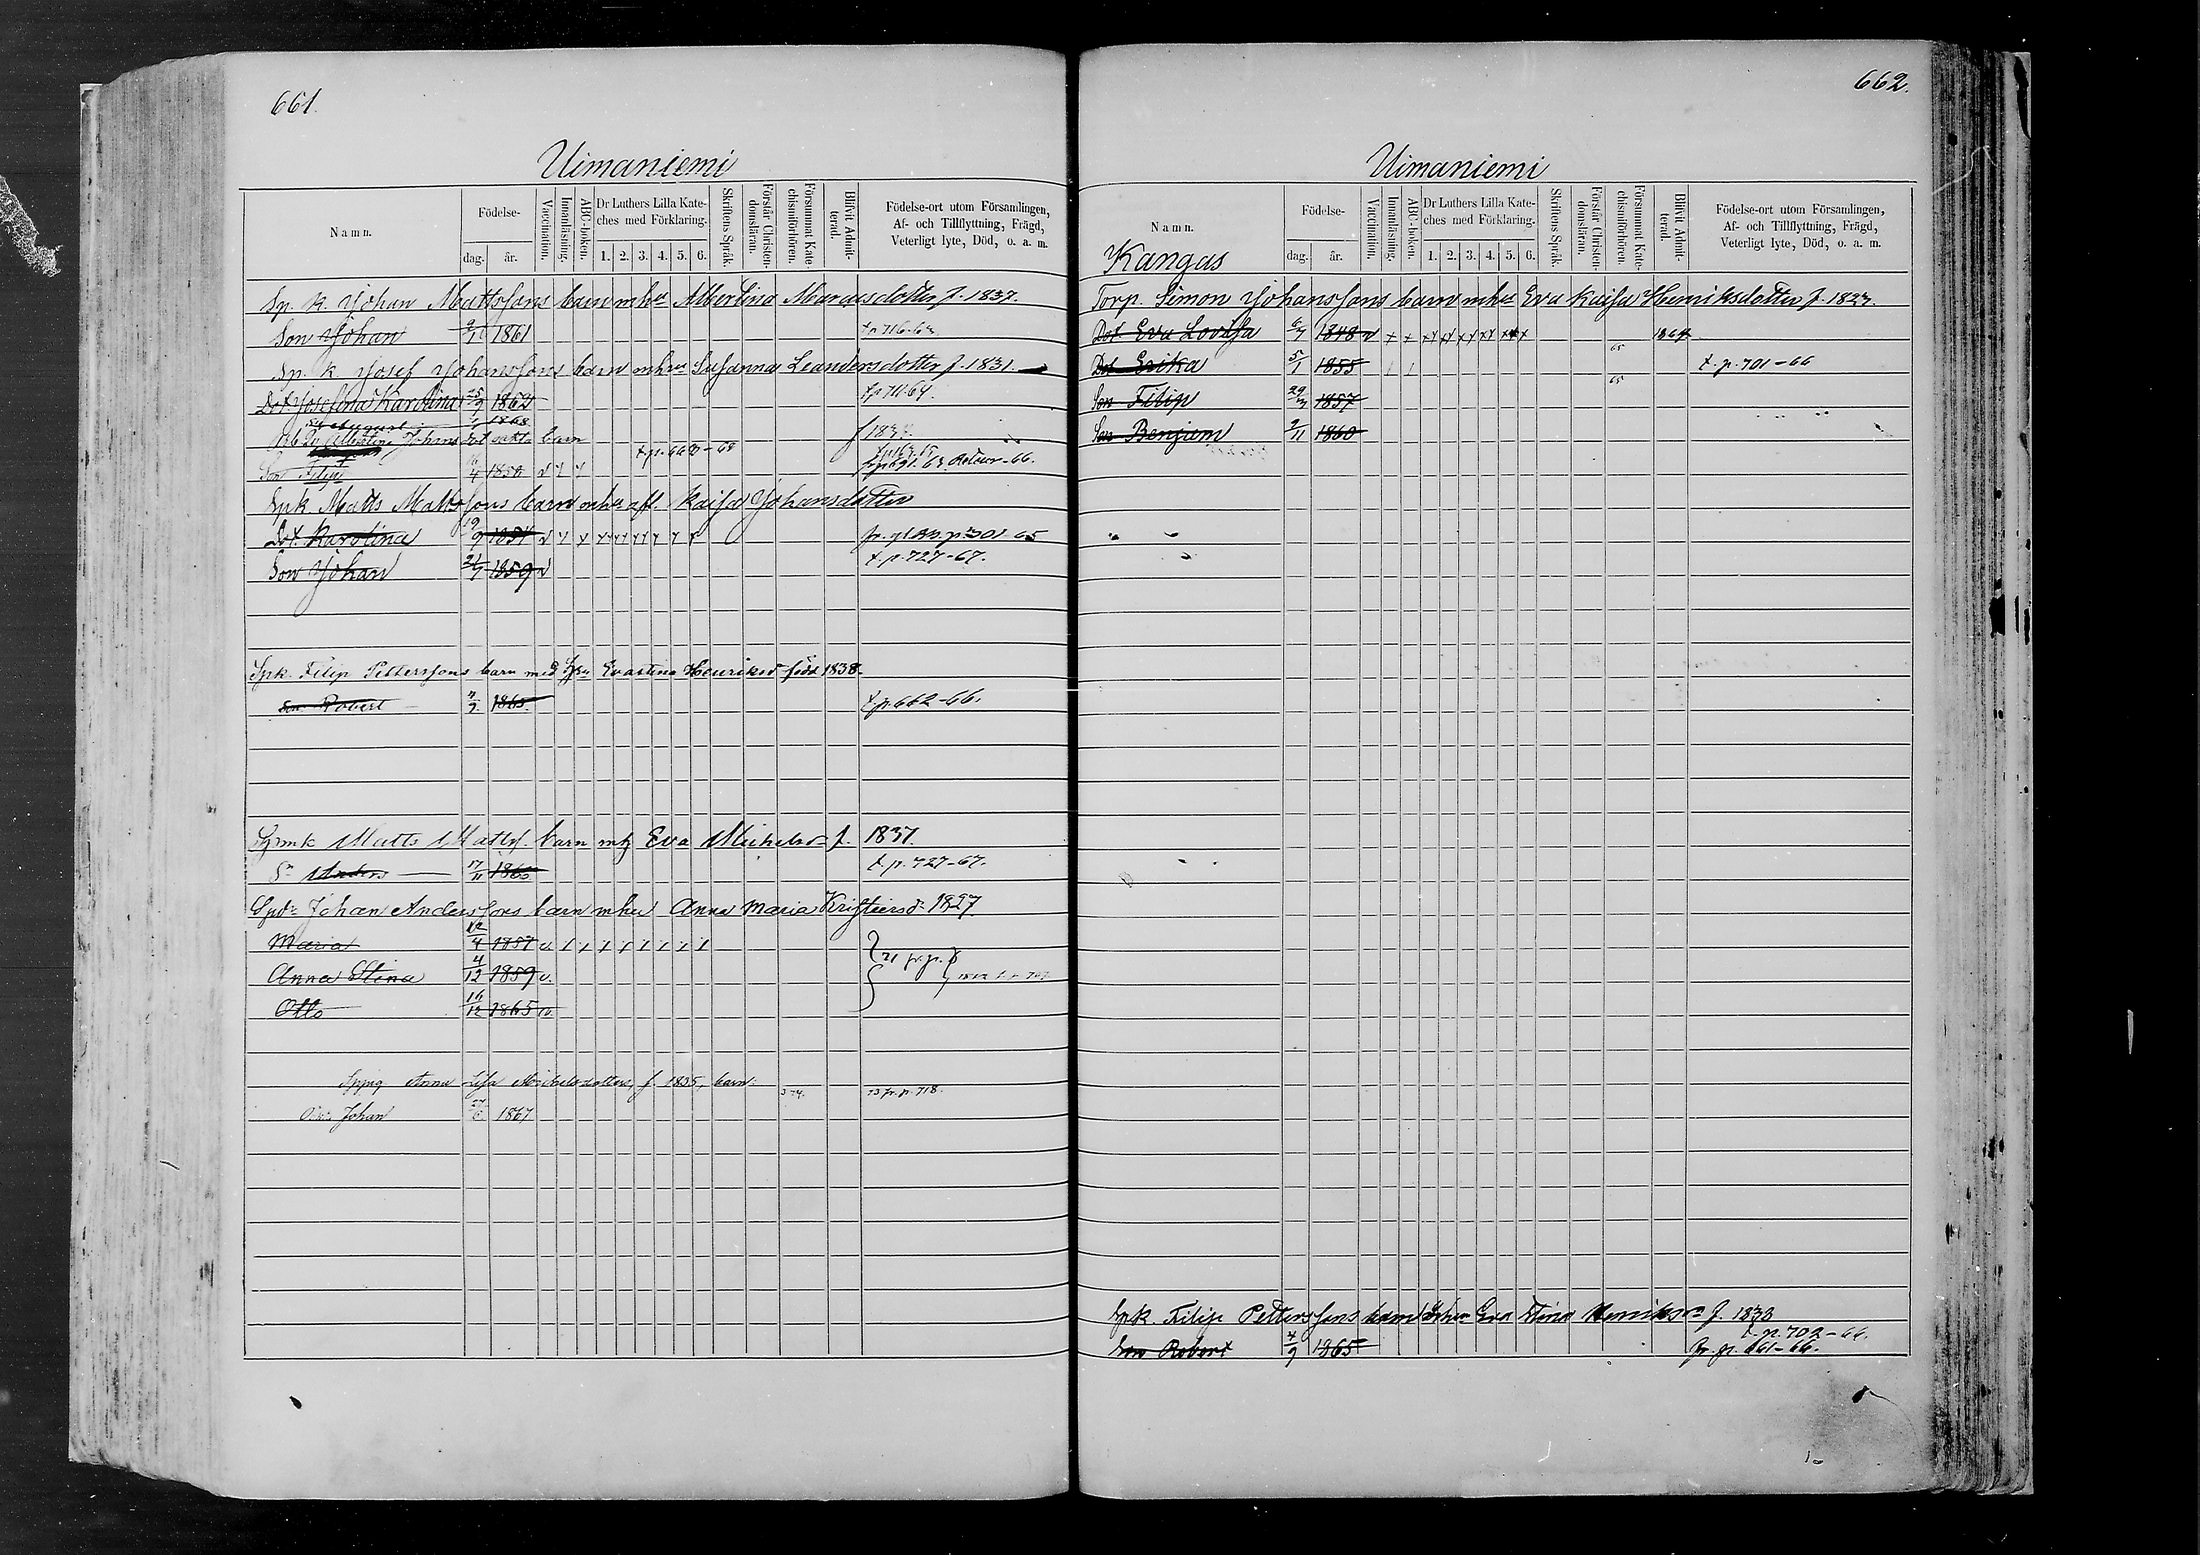 661.
Uimaniemi
Namn.
Födelse-
dag.
år.
Vaccination.
Innanläsning.
ABC-boken.
Dr Luthers Lilla Kate-
ches med Förklaring.
1. 2. 3. 4. 5. 6.
Skriftens Språk.
Förstår Christen-
domsläran.
Försummat Kate-
chismiförhören.
Blifvit Admit-
terad.
Födelse-ort utom Församlingen,
Af- och Tillflyttning, Frägd,
Veterligt lyte, Död, o. a. m.
Sp. k. Johan Mattssons barn mhu Albertina f. 1837.
Son Johan 1861
Sp. k. Josef Johanssons barn mhu Susanna Leandersdotter f. 1831.
Dot. Josefina Karolina 1862
Albertina Johans oäkta barn
t.p. 662-68
Son Filip 1850 Retour-66.
Spk Matts Mattssons barn mhu afl. Kaisa Johansdotter
Dot. Karolina 19/9 1851 p. 301-65
Son Johan 1859 t.p. 727-67.
Spk. Filip Petterssons barn med Hu Evastina Henriksd född 1838.
Son Robert 4/9 1865. t.p. 662-66.
Matts Matts. barn mh Eva Michelsd f. 1837.
Sn Anders 17/11 1865 t.p. 727-67.
Johan Anderssons barn mhu Anna Maria 1827
Maria 12/4 1857
Anna Stina 4/12 1859 v. 71 fr. p.
Otto 16/12 1865 v.
Anna Lisa Michelsdotters, f. 1835, barn:
Johan 1867 73 fr. p. 718.
662.
Uimaniemi
Namn.
Kangas
Födelse-
dag.
år.
Vaccination.
Innanläsning.
ABC-boken.
Dr Luthers Lilla Kate-
ches med Förklaring.
1. 2. 3. 4. 5. 6.
Skriftens Språk.
Förstår Christen-
domsläran.
Försummat Kate-
chismiförhören.
Blifvit Admit-
terad.
Födelse-ort utom Församlingen,
Af- och Tillflyttning, Frägd,
Veterligt lyte, Död, o. a. m.
Torp. Simon Johanssons barn mhu Eva Kaisa Henriksdotter f. 1823.
Dot. Eva Lovisa 6/7 1848 v 1864
Dot Erika 5/1 1855 65 t.p. 701-66
Son Filip 1857 65
Son Benjam 2/11 1860
Spk. Filip Petterssons barn Eva Stina Henriksdr f. 1838
t.p. 702-66.
Son Robert 4/9 1865 fr. p. 661-66.